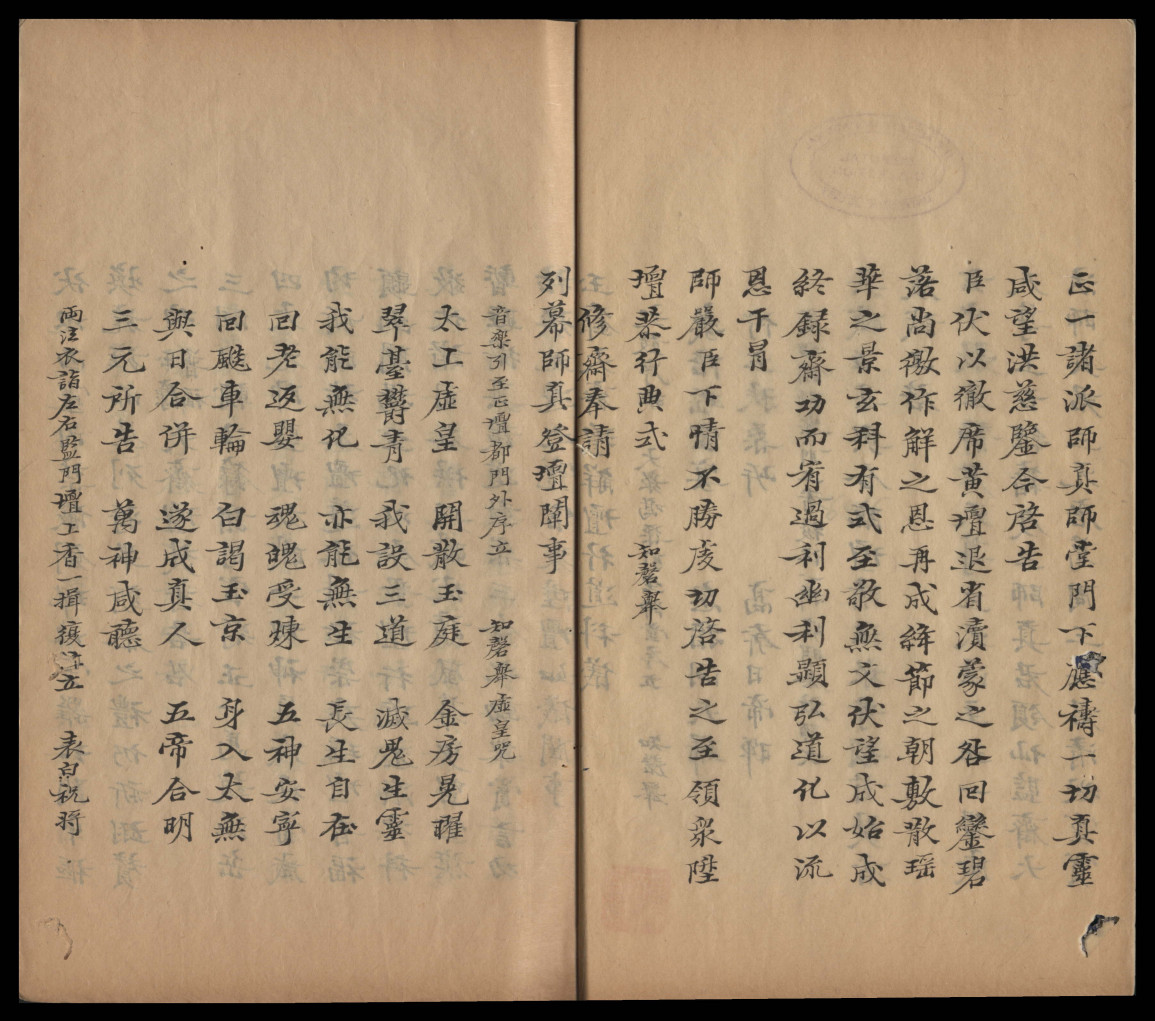 正一諸派師真師堂門下應禱一切真靈
咸望洪慈鑒今啓告
臣伏以徹席黃壇退省瀆蒙之咎回鑾碧
落尚徼作解之恩再成絳節之朝敷散瑶
華之景玄科有式至敬無文伏望成始成
終録齋功而宥過利幽利顯弘道化以流
恩干冒
師嚴臣下情不勝虔切啓告之至領衆陞
壇恭行典式 知磬舉
修齋奉請
列幕師真登壇闡事
音樂引至正壇都門外序立 知磬舉虛皇咒
太上虛皇 開散玉庭 金房晃曜
翠臺鬱青 我設三道 滅鬼生靈
我能無化 亦能無生 長生自在
回老返嬰 魂魄受煉 五神安寧
回颷車輪 白謁玉京 身入太無
與日合併 遂成真人 五帝合明
三元所告 萬神咸聽
兩法衣詣左右監門壇上香一揖復位立 表白祝將